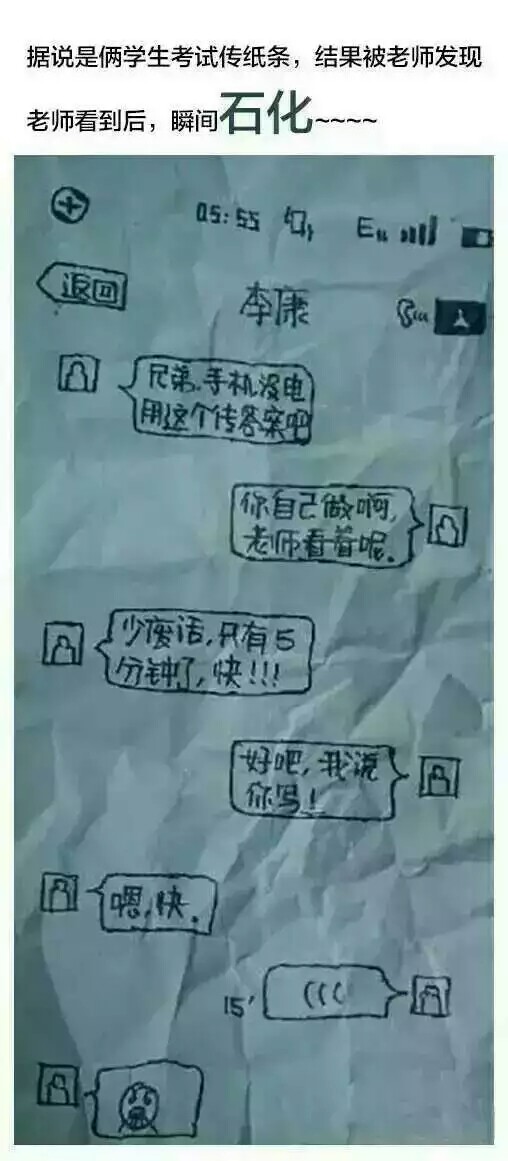 据说是俩学生考试传纸条，结果被老师发现
老师看到后，瞬间石化~~~~
05:55
E
退回
李康
兄弟.手机没电
用这个传答案吧
你自己做啊,
老师看着呢.
少废话,只有5
分钟了,快!!!
好吧,我说
你写!
嗯,快.
15'
(((